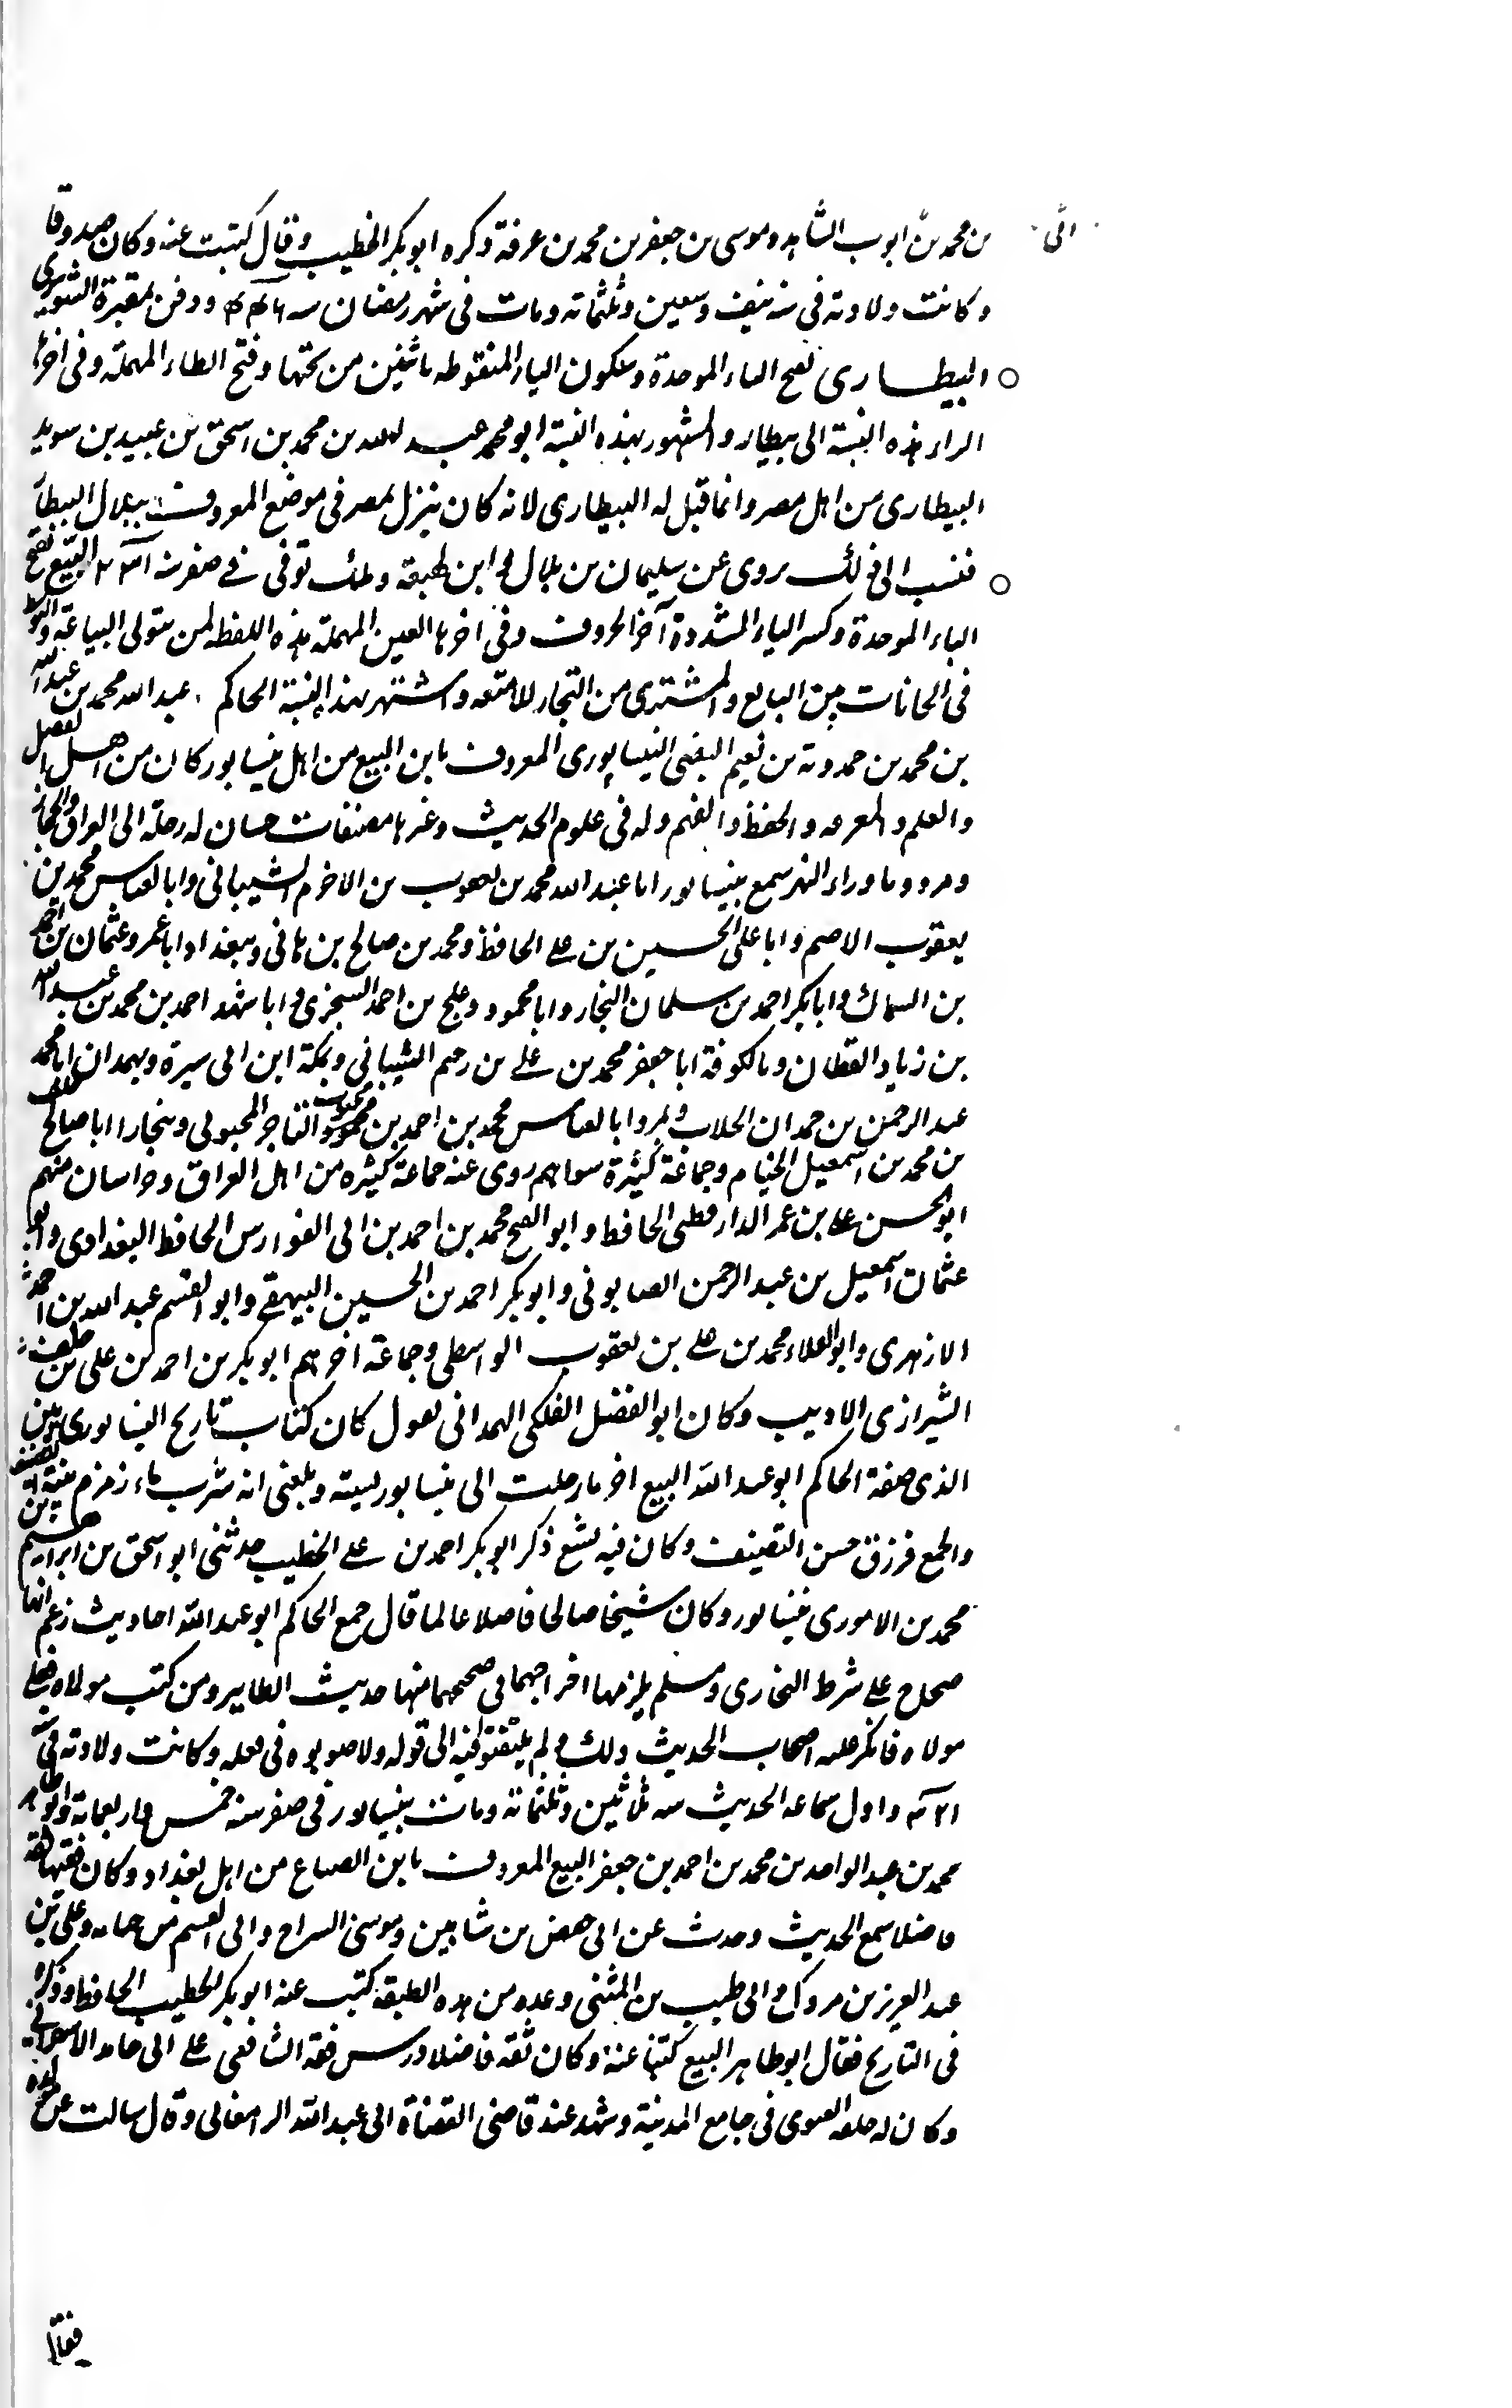 الى
بن محمد بن ايوب الشاهد وموسى بن جعفر بن محمد بن عرفة ذكره ابوبكر الخطيب وقال كتبت عنه وكان صدوقا
وكانت ولادته فى سنة نيف وسعين وثلثمائة ومات فى شهر رمضان سنه ٤٤٦ ودفن بمقبرة الشونيزى
البيطارى بفتح الباء الموحدة وسكون الياء المنقوطه باثنين من تحتها وفتح الطاء المهملة وفى اخرها
الراء هذه النسبة الى بيطار والمشهور بهذه النسبة ابو محمد عبد الله بن محمد بن اسحق بن عبيد بن سويد
البيطارى من اهل مصر وانما قيل له البيطارى لانه كان ينزل بمصر فى موضع المعروف ببلال البيطار
فنسب الى ذلك يروى عن سليمان بن بلال وابن لهيعة ومالك توفى فى صفر سنة ٢٣١ البيع بفتح
الباء الموحدة وكسر الياء المشددة آخر الحروف وفى اخرها العين المهملة هذه اللفظه لمن يتولى البياعة والتوسط
فى الخانات بين البايع والمشترى من التجار للامتعه واشتهر بهذه النسبة الحاكم ابو عبد الله محمد بن عبد الله
بن محمد بن حمدوية بن نعيم الضبى النيسابورى المعروف بابن البيع من اهل نيسابور كان من اهل الفضل
والعلم والمعرفه والحفظ والفهم وله فى علوم الحديث وغيرها مصنفات حسان له رحلة الى العراق والحجاز
ومرو وما وراء النهر سمع بنيسابور ابا عبد الله محمد بن يعقوب بن الاخرم الشيبانى وابا العباس محمد بن
يعقوب الاصم وابا على الحسين بن على الحافظ ومحمد بن صالح بن هانى وببغداد ابا عمرو عثمان بن احمد
بن السماك وابا بكر احمد بن سلمان النجار وابا محمود دعلج بن احمد السجزى وابا سهد احمد بن محمد بن عبد الله
بن زياد القطان وبالكوفة ابا جعفر محمد بن على بن رحيم الشيبانى وبمكة ابن ابى سيرة وبهمدان ابا محمد
عبد الرحمن بن حمدان الجلاب وبمرو ابا العباس محمد بن احمد بن محبوب التاجر المحبوبى وببخارا ابا صالح خلف
بن محمد بن اسمعيل الخيام وجماعة كثيرة سواهم روى عنه جماعة كثيره من اهل العراق وخراسان منهم
ابو الحسن على بن عمر الدارقطنى الحافظ وابو الفتح محمد بن احمد بن ابى الفوارس الحافظ البغدادى وابو
عثمان اسمعيل بن عبد الرحمن الصابونى وابوبكر احمد بن الحسين البيهقى وابو القسم عبد الله بن احمد
الازهرى وابو العلاء محمد بن على بن يعقوب الواسطى وجماعة اخرهم ابوبكر بن احمد بن على بن خلف
الشيرازى الاديب وكان ابو الفضل الفلكى الهمدانى يقول كان كتاب تاريخ النيسابورىين
الذى صنفة الحاكم ابو عبد الله البيع اخر ما رحلت الى نيسابور لسبته وبلغنى انه شرب ماء زمزم بنية التصنيف
والجمع فرزق حسن التصنيف وكان فيه تشيع ذكر ابوبكر احمد بن على الخطيب حدثنى ابو اسحق بن ابراهيم بن
محمد بن الاموى بنيسابور وكان شيخا صالحا فاضلا عالما قال جمع الحاكم ابو عبد الله احاديث زعم انها
صحاح على شرط البخارى ومسلم يلزمها اخراجهما فى صحيحهما منها حديث الطاير ومن كنت مولاه فعلى
مولاه فانكر عليه اصحاب الحديث ذلك ولم يلتفتوا فيه الى قوله ولا صوبوه فى فعله وكانت ولادته فى سنة
٣٢١ واول سماعه الحديث سنه ثلاثين وثلثمائة ومات بنيسابور فى صفر سنة خمس واربعمائة وابو طاهر
محمد بن عبد الواحد بن محمد بن احمد بن جعفر البيع المعروف بابن الصباغ من اهل بغداد وكان فقيها ثقة
فاضلا سمع الحديث وحدث عن ابى حفص بن شاهين وموسى السراج وابى القسم بن حبابه وعلى بن
عبد العزيز بن مردك وابى طيب بن المثنى وعده من هذه الطبقة كتب عنه ابوبكر الخطيب الحافظ وذكره
فى التاريخ فقال ابو طاهر البيع كتبنا عنه وكان ثقة فاضلا درس فقه الشافعى على ابى حامد الاسفراينى
وكان له حلقه الفتوى فى جامع المدينة وشهد عند قاضى القضاة ابى عبد الله الدامغانى وقال سالت عن مولده
فقال